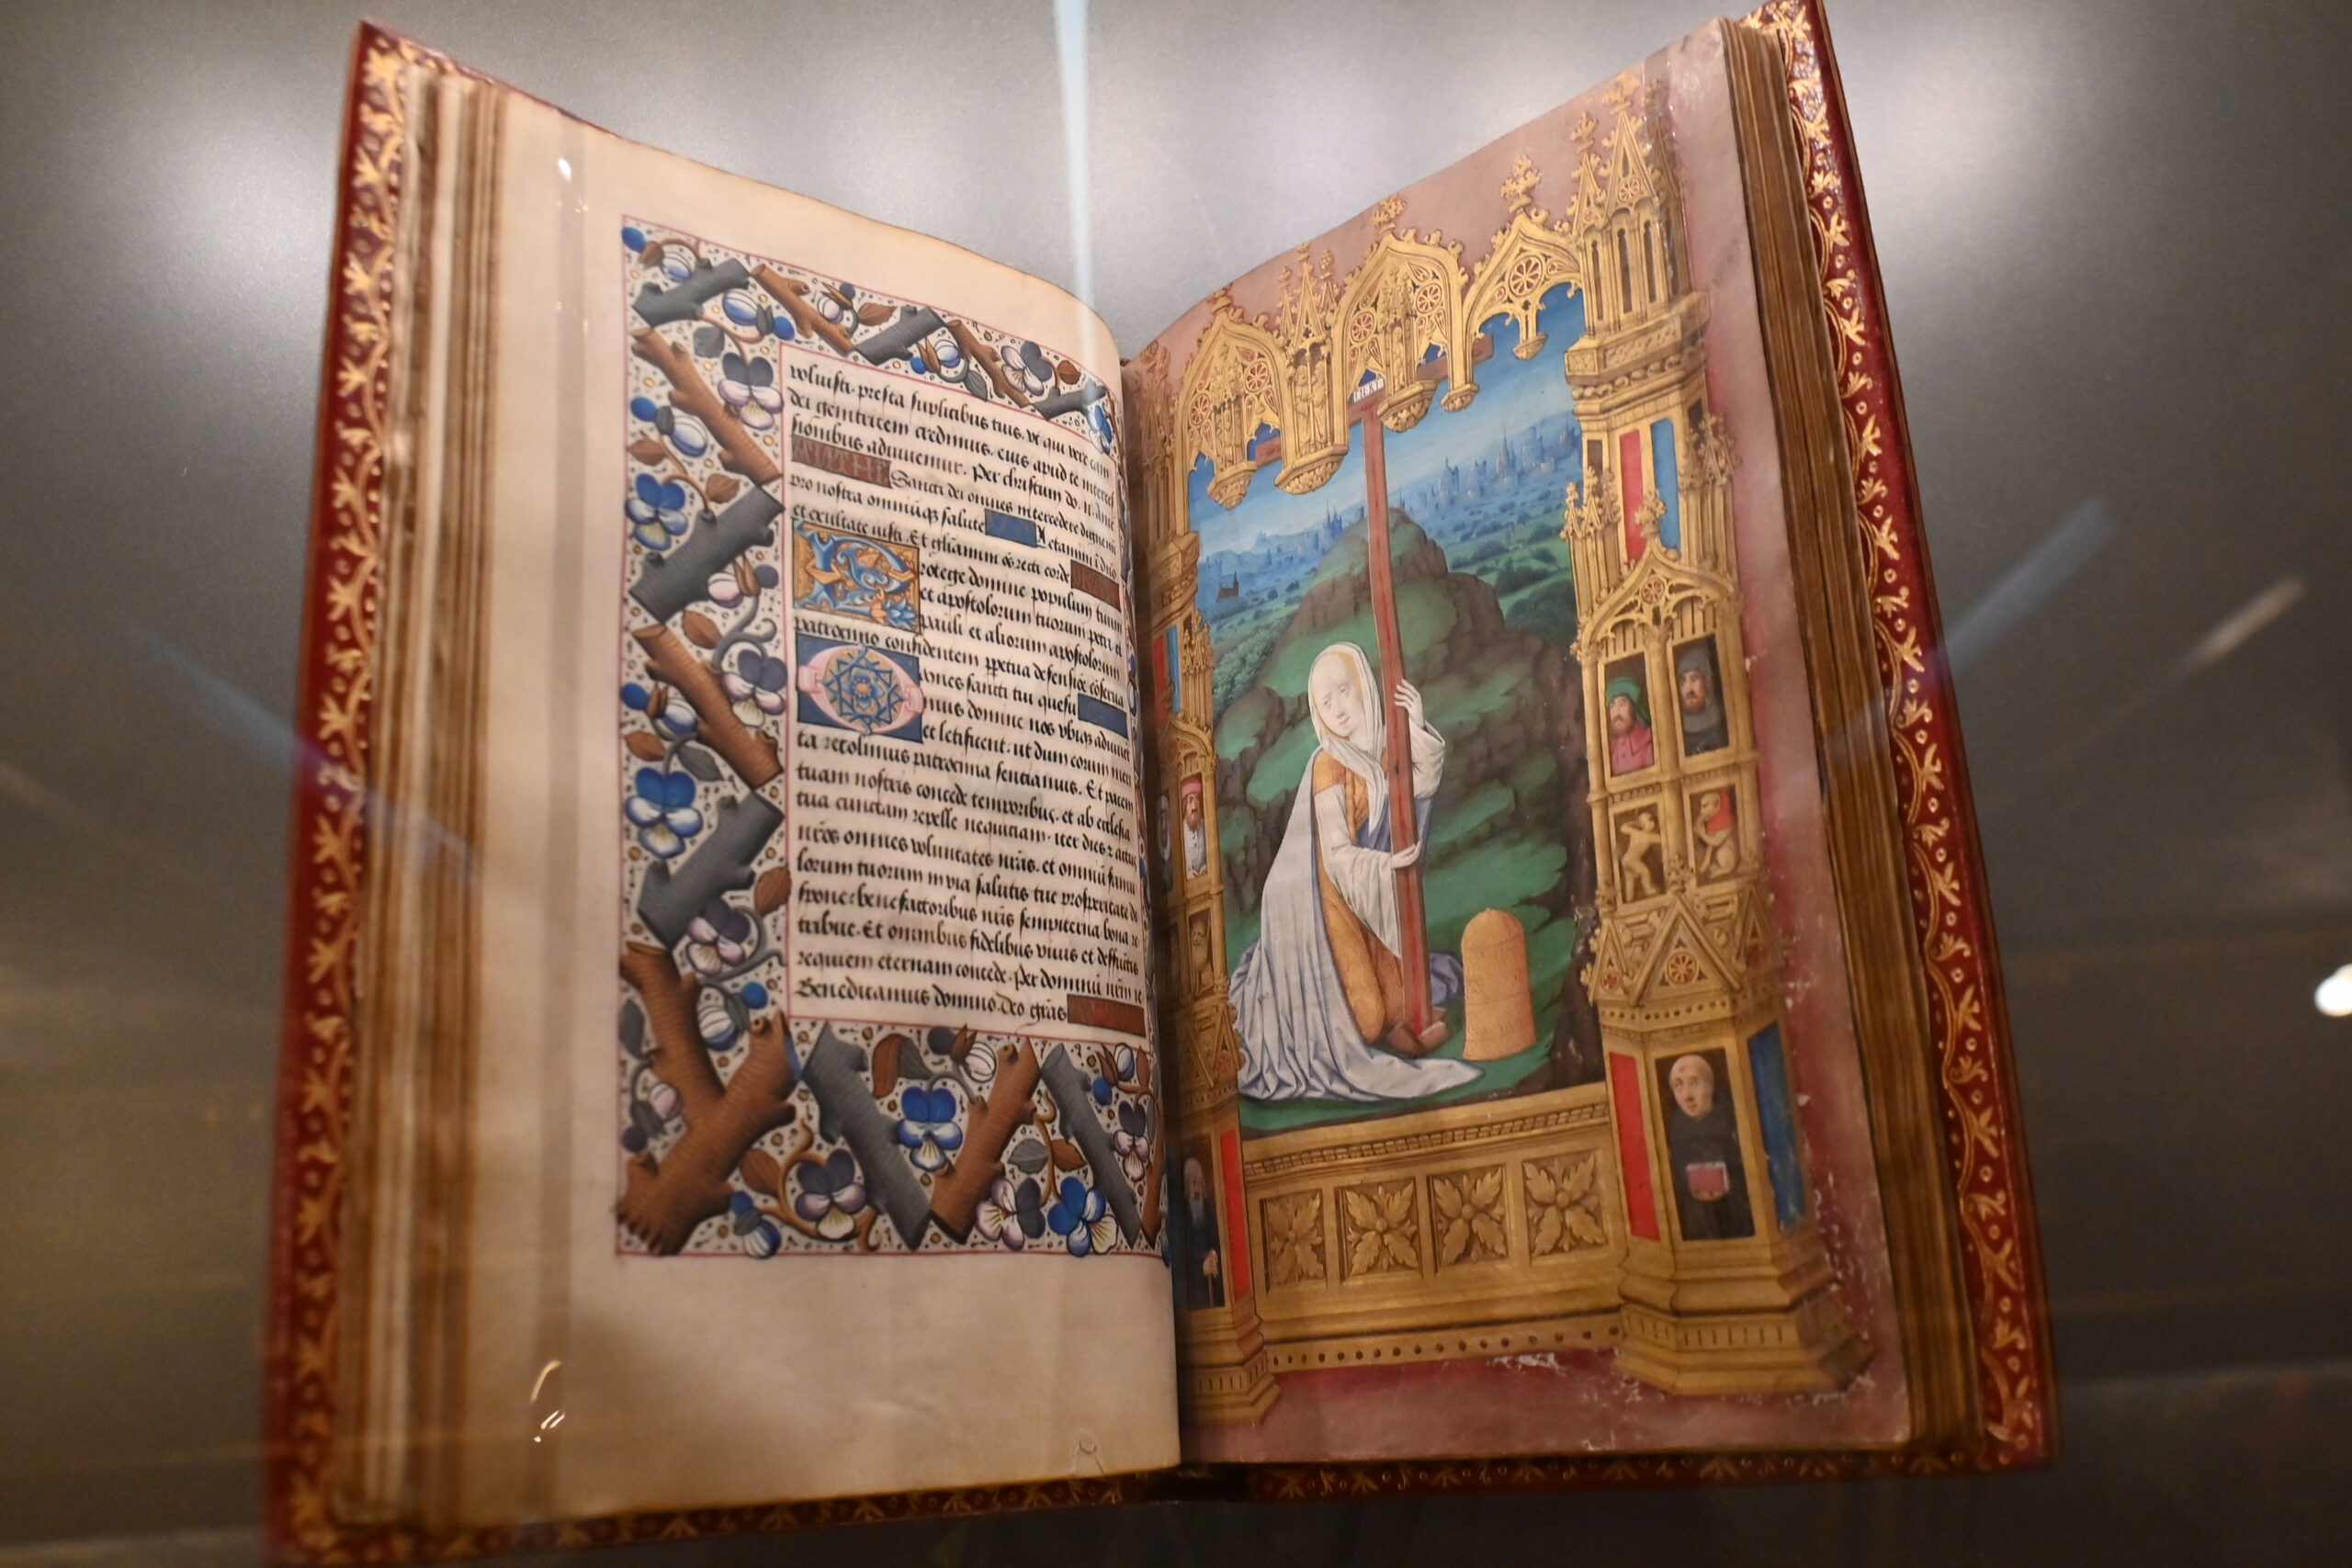 voluisti. presta suplicibus tuis. vt qui vere eam
dei genitricem credimus. eius apud te interces
sionibus adiuuemur. Per christum do. n. Ant
Sancti dei omnes intercedere dignemi
pro nostra omniūqȝ salute Letamini ī dn̄o
et exultate iusti. Et gl̄iamini ōs recti corde
Protege domine populum tuum
et apostolorum tuorum petri et
pauli et aliorum apostolorum
patrocinio confidentem ꝑpetua defensiōe cōserua
Omnes sancti tui quesu
mus domine nos vbiqȝ adiuuēt
et letificent. ut dum eorum meri
ta recolimus patrocinia sentiamus. Et pacem
tuam nostris concede temporibus. et ab ecclesia
tua cunctam repelle nequitiam. iter dies ꝛ actus
nr̄os omnes voluntates nr̄as. et omniū famu
lorum tuorum in via salutis tue prosperitate di
spone. benefactoribus nr̄is sempiterna bona re
tribue. Et omnibus fidelibus viuis et deffūctis
requiem eternam concede. Per dominū nr̄m ie
Benedicamus domino. Deo gr̄as